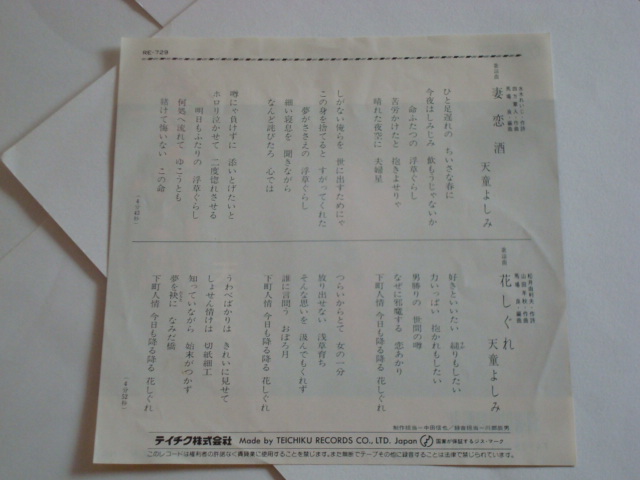 RE-729
妻恋酒
天童よしみ
ひと足遅れの ちいさな春に
今夜はしみじみ 飲もうじゃないか
命ふたつの 浮草ぐらし
苦労かけたと 抱きよせりゃ
晴れた夜空に 夫婦星
しがない俺らを 世に出すためにゃ
この身を捨てると すがってくれた
夢がささえの 浮草ぐらし
細い寝息を 聞きながら
なんど詫びたろ 心では
噂にゃ負けずに 添いとげたいと
ホロリ泣かせて 二度惚れさせる
明日もふたりの 浮草ぐらし
何処へ流れて ゆこうとも
賭けて悔いない この命
花しぐれ
天童よしみ
好きといいたい 縋りもしたい
力いっぱい 抱かれもしたい
男勝りの 世間の噂
なぜに邪魔する 恋あかり
下町人情 今日も降る降る 花しぐれ
つらいからとて 女の一分
放り出せない 浅草育ち
そんな思いを 汲んでもくれず
誰に言問う おぼろ月
下町人情 今日も降る降る 花しぐれ
うわべばかりは きれいに見せて
しょせん情けは 切紙細工
知っていながら 始末がつかず
夢を袂に なみだ橋
下町人情 今日も降る降る 花しぐれ
テイチク株式会社 Made by TEICHIKU RECORDS CO., LTD. Japan
このレコードは権利者の許諾なく賃貸業に使用することを禁じます。また無断でテープその他に録音することは法律で禁じられています。